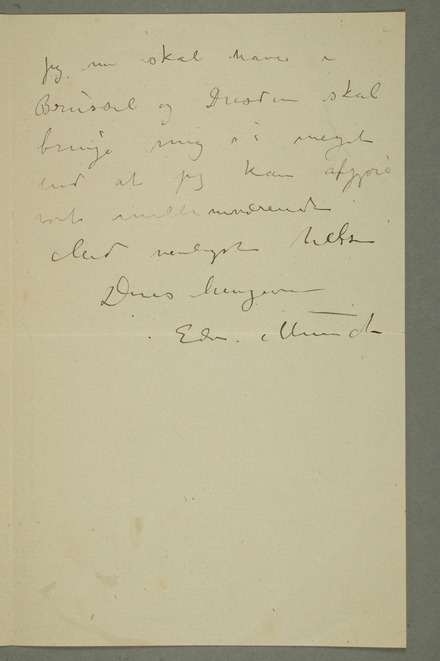 jeg nu skal have i
Brüssel og Dresden skal
bringe mig så meget
ind at jeg kan afgjøre
vort mellemværende
Med venligst hilsen
Deres hengivne
Edv. Munch